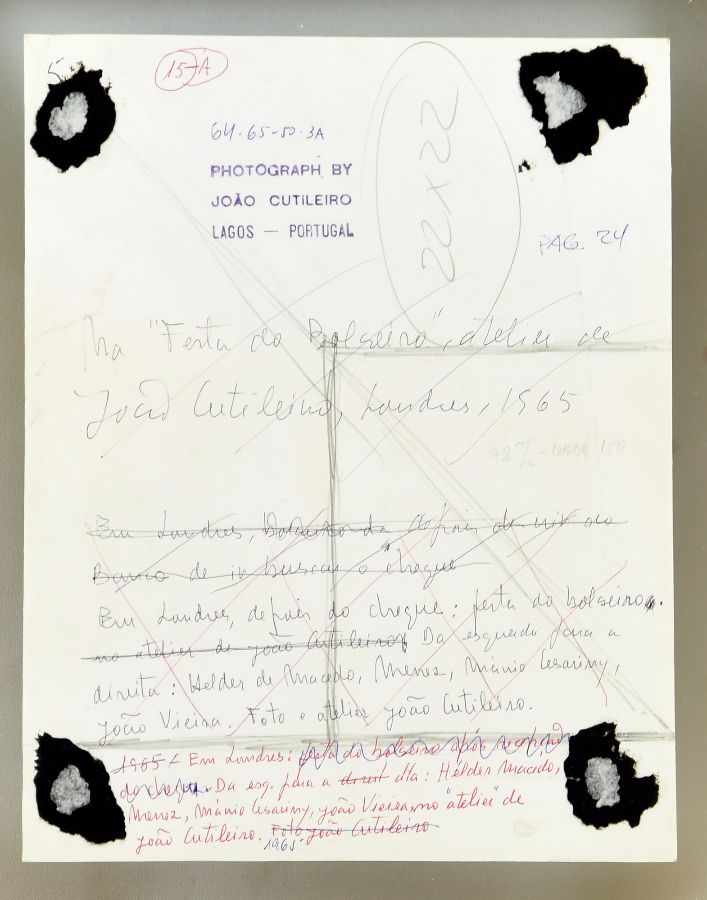 5
15-A
64-65-50-3A
PHOTOGRAPH BY
JOÃO CUTILEIRO
LAGOS — PORTUGAL
22 x 22
PAG. 24
Na "Festa do Bolseiro", atelier de
João Cutileiro, Londres, 1965
98 m/m - BASE 150
Em Londres, depois de ir ao
Banco de ir buscar o cheque
Em Londres, depois do cheque: festa do bolseiro.
no atelier de João Cutileiro. Da esquerda para a
direita: Helder de Macedo, Menez, Mário Cesariny,
João Vieira. Foto e atelier João Cutileiro.
1965 - Em Londres: festa do bolseiro após recebido
do cheque. Da esq. para a direit dta: Hélder Macedo,
Menez, Mário Cesariny, João Vieira, no "atelier" de
João Cutileiro. Foto João Cutileiro.
1965.